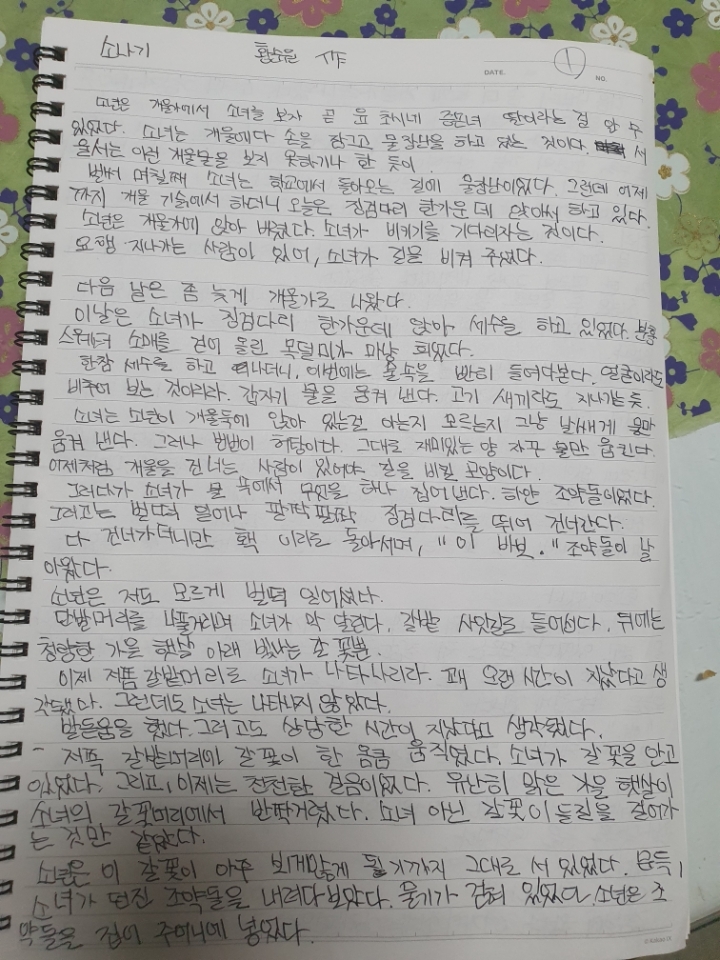 소나기 황순원 作
DATE. ① NO.
소년은 개울가에서 소녀를 보자 곧 윤 초시네 증손녀 딸이라는 걸 알 수
있었다. 소녀는 개울에다 손을 잠그고 물장난을 하고 있는 것이다. 서
울서는 이런 개울물을 보지 못하기나 한 듯이.
벌써 며칠째 소녀는 학교에서 돌아오는 길에 물장난이었다. 그런데 어제
까지 개울 기슭에서 하더니 오늘은 징검다리 한가운데 앉아서 하고 있다.
소년은 개울가에 앉아 버렸다. 소녀가 비키기를 기다리자는 것이다.
요행 지나가는 사람이 있어, 소녀가 길을 비켜 주었다.
다음 날은 좀 늦게 개울가로 나왔다.
이날은 소녀가 징검다리 한가운데 앉아 세수를 하고 있었다. 분홍
스웨터 소매를 걷어 올린 목덜미가 마냥 희었다.
한참 세수를 하고 나더니, 이번에는 물속을 빤히 들여다본다. 얼굴이라도
비추어 보는 것이리라. 갑자기 물을 움켜 낸다. 고기 새끼라도 지나가는 듯.
소녀는 소년이 개울둑에 앉아 있는걸 아는지 모르는지 그냥 날쌔게 물만
움켜 낸다. 그러나 번번이 허탕이다. 그대로 재미있는 양 자꾸 물만 움킨다.
어제처럼 개울을 건너는 사람이 있어야 길을 비킬 모양이다.
그러다가 소녀가 물 속에서 무엇을 하나 집어낸다. 하얀 조약돌이었다.
그러고는 벌떡 일어나 팔짝팔짝 징검다리를 뛰어 건너간다.
다 건너가더니만 홱 이리로 돌아서며, "이 바보." 조약돌이 날
아왔다.
소년은 저도 모르게 벌떡 일어섰다.
단발머리를 나풀거리며 소녀가 막 달린다. 갈밭 사잇길로 들어섰다. 뒤에는
청량한 가을 햇살 아래 빛나는 갈꽃뿐.
이제 저쯤 갈밭머리로 소녀가 나타나리라. 꽤 오랜 시간이 지났다고 생
각됐다. 그런데도 소녀는 나타나지 않았다.
발돋움을 했다. 그러고도 상당한 시간이 지났다고 생각됐다.
저쪽 갈밭머리에 갈꽃이 한 옴큼 움직였다. 소녀가 갈꽃을 안고
있었다. 그리고, 이제는 천천한 걸음이었다. 유난히 맑은 가을 햇살이
소녀의 갈꽃머리에서 반짝거렸다. 소녀 아닌 갈꽃이 들길을 걸어가
는 것만 같았다.
소년은 이 갈꽃이 아주 뵈지않게 되기까지 그대로 서 있었다. 문득,
소녀가 던진 조약돌을 내려다보았다. 물기가 걷혀 있었다. 소년은 조
약돌을 집어 주머니에 넣었다.